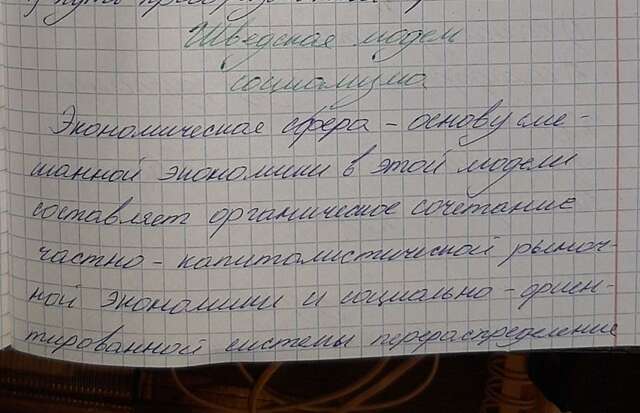 Шведская модел
социализма
Экономическая сфера – основу сме-
шанной экономики в этой модели
составляет органическое сочетание
частно – капиталистической рыноч-
ной экономики и социально – ориен-
тированной системы перераспределение